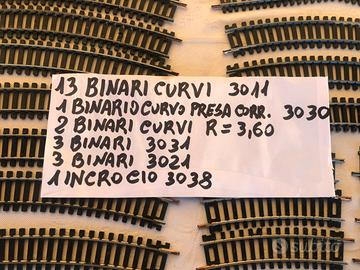 13 BINARI CURVI 3011
1 BINARIO CURVO PRESA CORR. 3030
2 BINARI CURVI R=3,60
3 BINARI 3031
3 BINARI 3021
1 INCROCIO 3038
subito